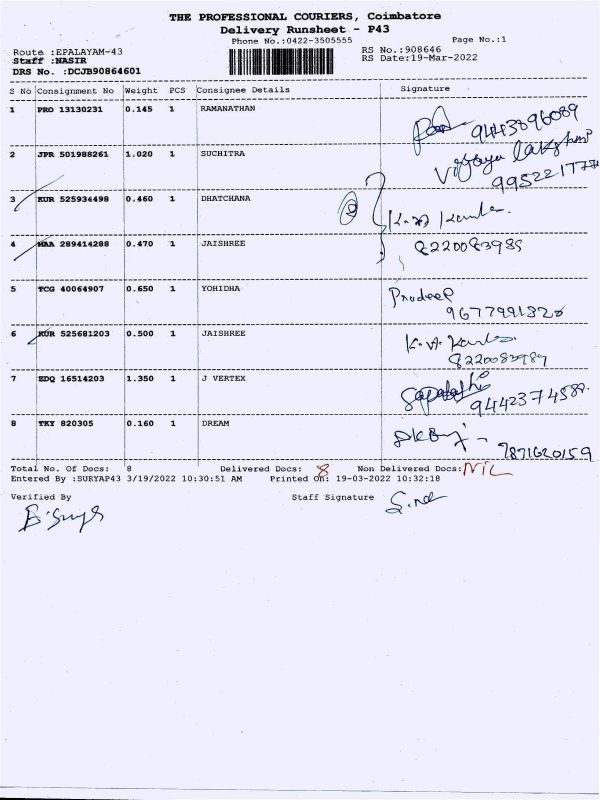 THE PROFESSIONAL COURIERS, Coimbatore
Delivery Runsheet - P43
Phone No.:0422-3505555 Page No.:1
Route :EPALAYAM-43 RS No.:908646
Staff :NASIR RS Date:19-Mar-2022
DRS No. :DCJB90864601
S No Consignment No Weight PCS Consignee Details Signature
1 PRO 13130231 0.145 1 RAMANATHAN
9443896089
2 JPR 501988261 1.020 1 SUCHITRA Vijaya lakshmi
3 KUR 525934498 0.460 1 DHATCHANA
4 MAA 289414288 0.470 1 JAISHREE 8220083989
5 TCG 40064907 0.650 1 YOHIDHA Pradeep
9677991320
6 KUR 525681203 0.500 1 JAISHREE
8220083989
7 EDQ 16514203 1.350 1 J VERTEX
9442374589
8 TKY 820305 0.160 1 DREAM
7871620159
Total No. Of Docs: 8 Delivered Docs: 8 Non Delivered Docs: NIL
Entered By :SURYAP43 3/19/2022 10:30:51 AM Printed On: 19-03-2022 10:32:18
Verified By Staff Signature